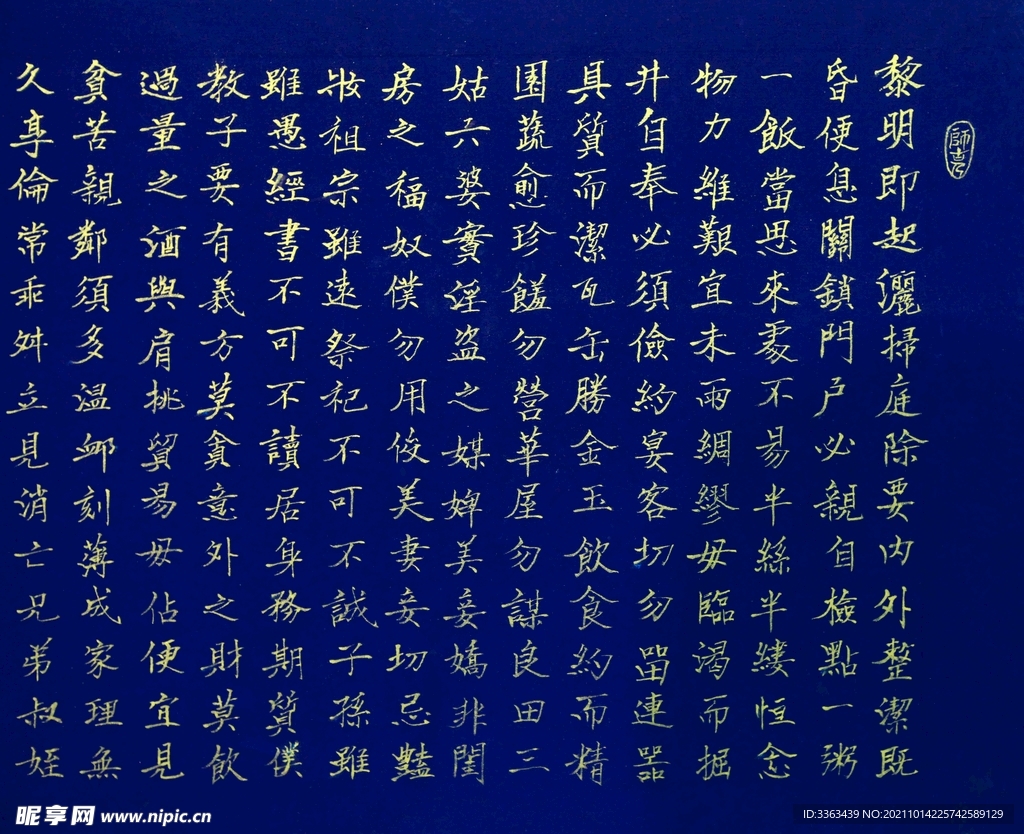 黎明即起灑掃庭除要內外整潔既
昏便息關鎖門戶必親自檢點一粥
一飯當思來處不易半絲半縷恒念
物力維艱宜未雨綢繆毋臨渴而掘
井自奉必須儉約宴客切勿畱連器
具質而潔瓦缶勝金玉飲食約而精
園蔬愈珍饈勿營華屋勿謀良田三
姑六婆實淫盜之媒婢美妾嬌非閨
房之福奴僕勿用俊美妻妾切忌豔
妝祖宗雖遠祭祀不可不誠子孫雖
雖愚經書不可不讀居身務期質僕
教子要有義方莫貪意外之財莫飲
過量之酒與肩挑貿易毋佔便宜見
貧苦親鄰須多溫卹刻薄成家理無
久享倫常乖舛立見消亡兄弟叔姪
昵享网 www.nipic.cn
ID:3363439 NO:20211014225742589129